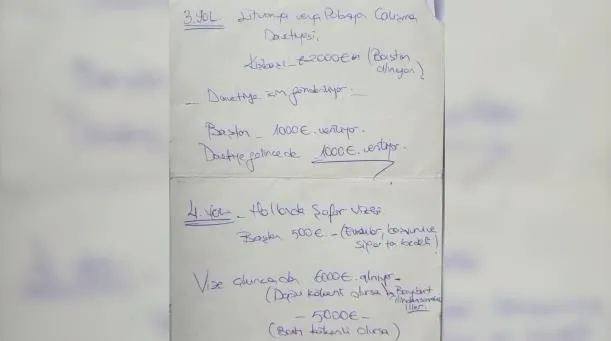 3. YOL Litvanya veya Polonya Çalışma
Davetiyesi,
Kişibaşı - 2000€ (Baştan
alınıyor)
- Davetiye için gönderiliyor -
Baştan - 1000€ veriliyor.
Davetiye gelince de 1000€ veriliyor.
4. YOL - Hollanda Şoför Vizesi
Baştan 500€ - (Evraklar, başvuru ve
sigorta bedeli)
Vize alınca da 6000€ alınıyor -
(Doğu kökenli olursa
- 5000€ -
(Batı kökenli olursa)